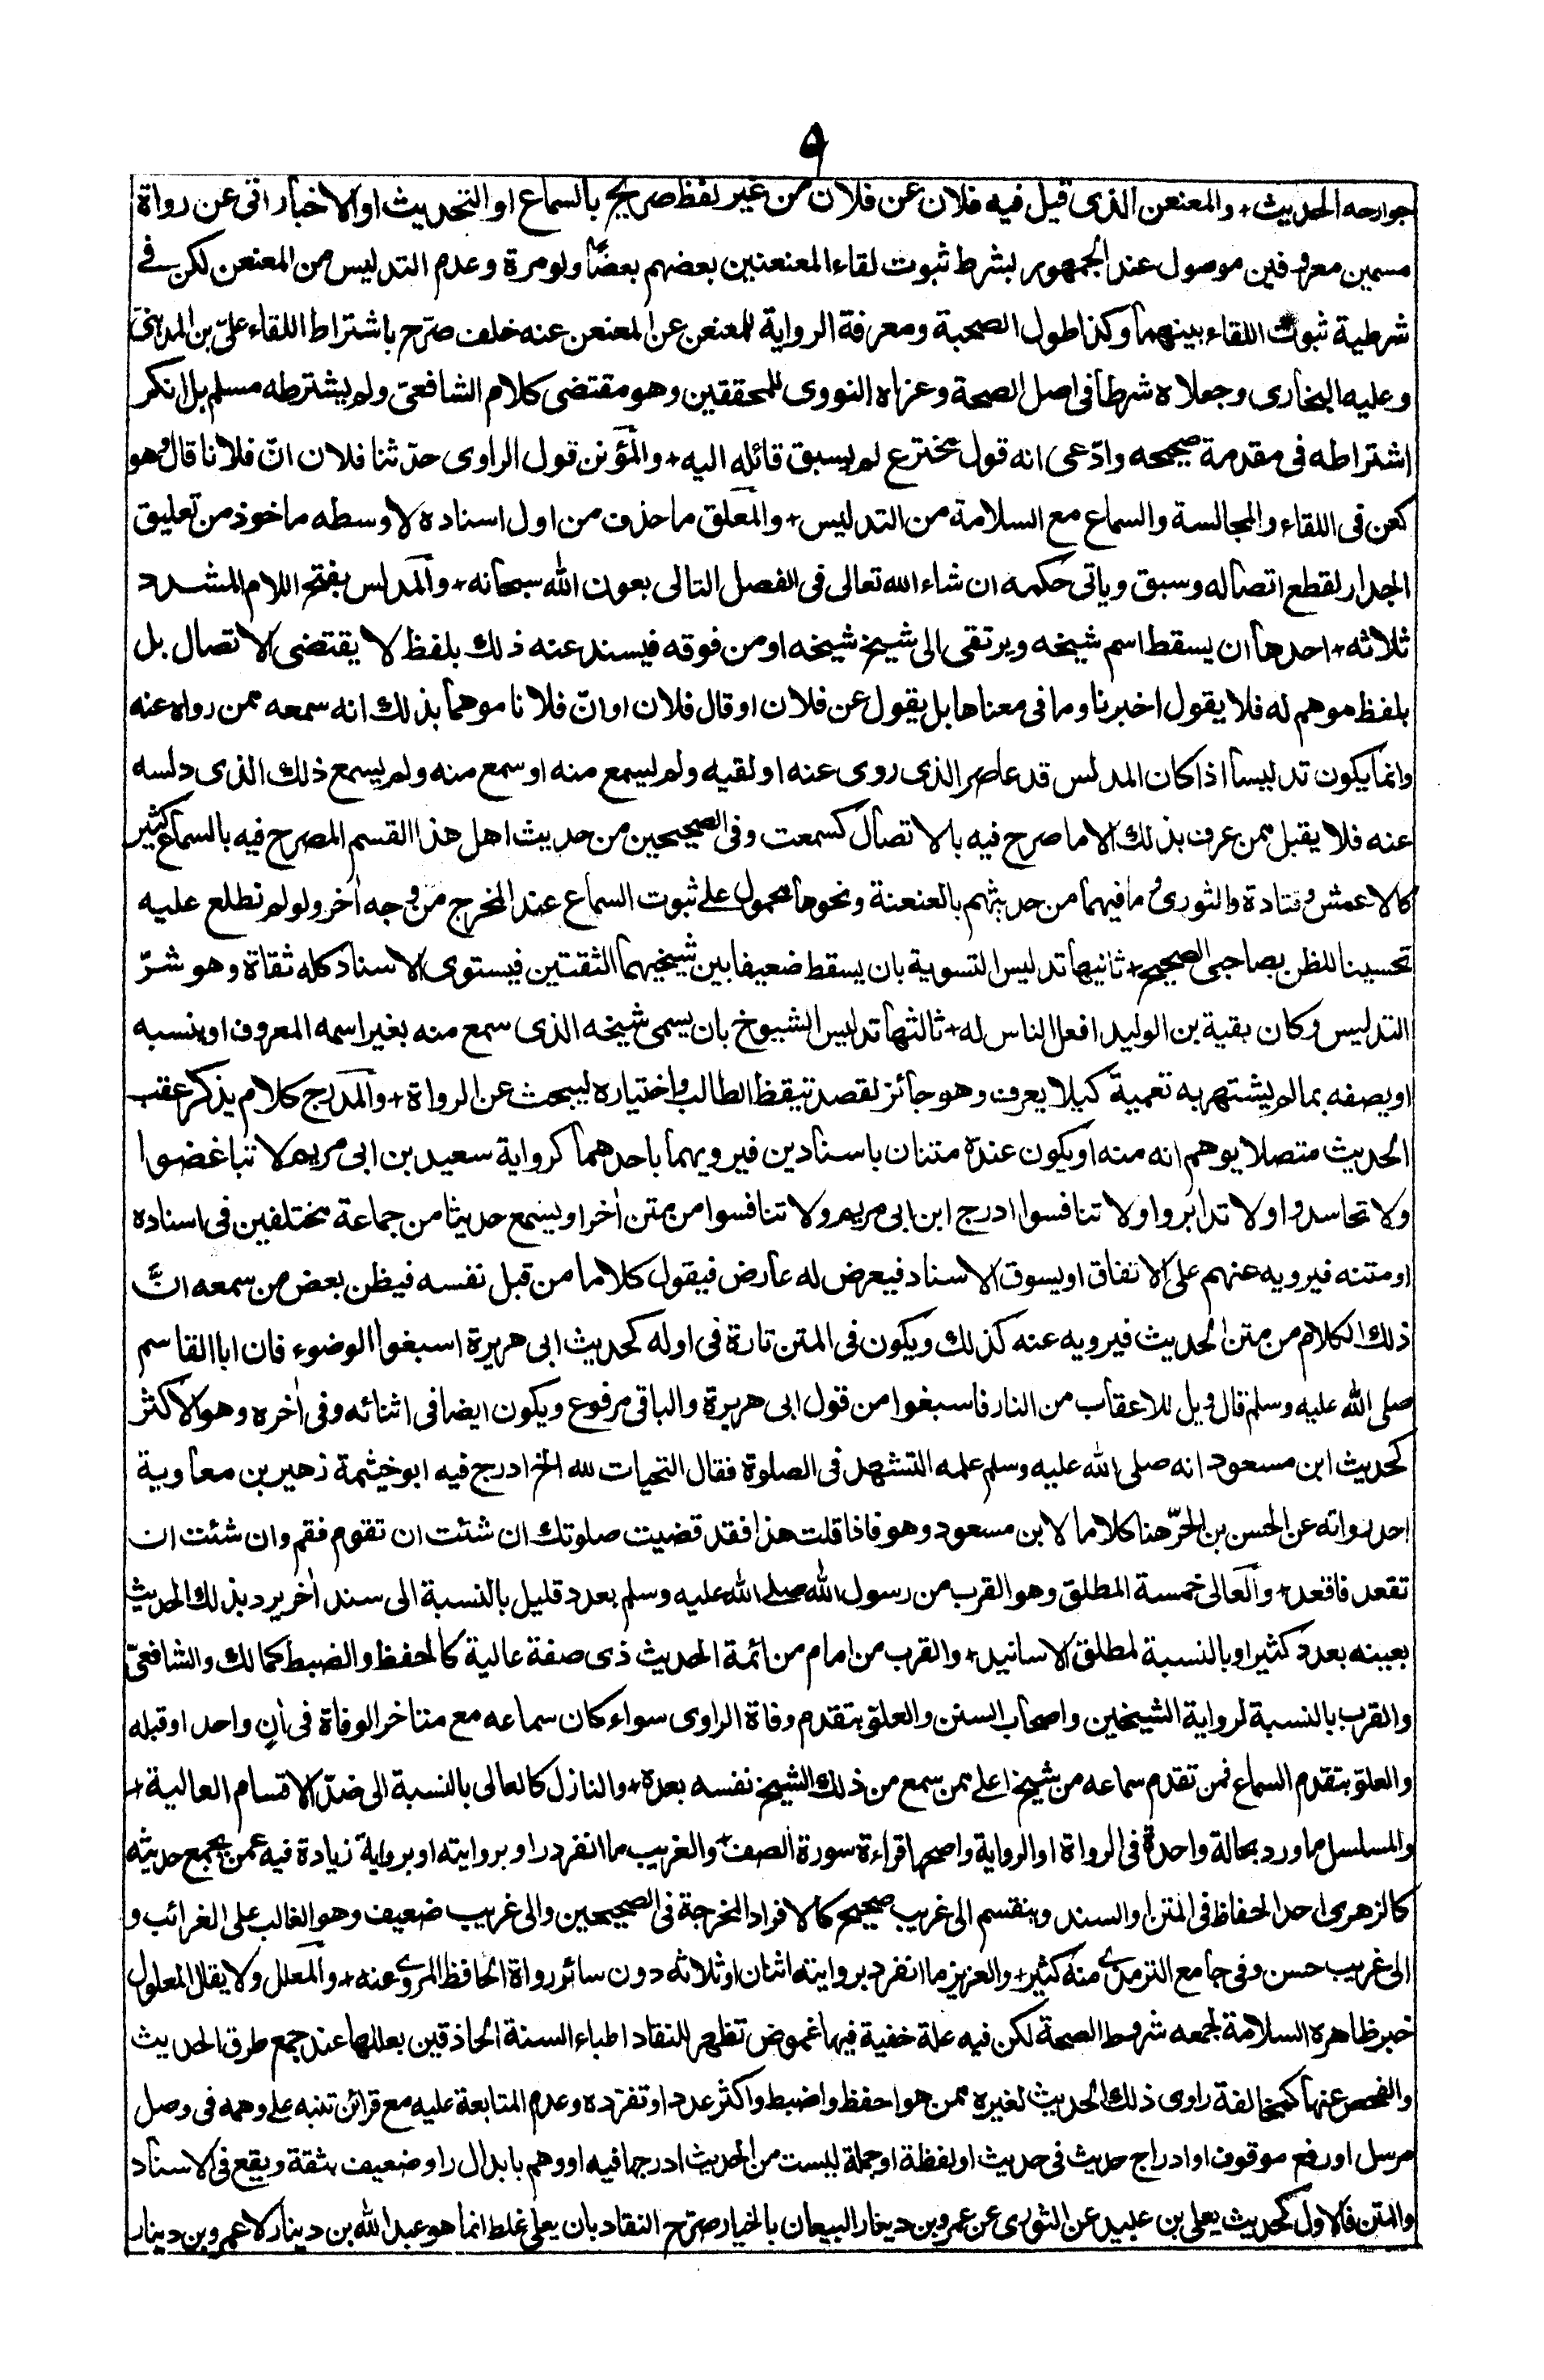 ٩
جوارحه الحديث+ والمعنعن الذى قيل فيه فلان عن فلان من غير لفظ صريح بالسماع او التحديث او الاخبار اتى عن رواة
مسمين معروفين موصول عند الجمهور بشرط ثبوت لقاء المعنعنين بعضهم بعضًا ولو مرة وعدم التدليس من المعنعن لكن فى
شرطية ثبوت اللقاء بينهما وكذا طول الصحبة ومعرفة الرواية للمعنعن عن المعنعن عنه خلف صرّح باشتراط اللقاء علىّ بن المدينى
وعليه البخارى وجعلاه شرطا فى اصل الصحة وعزاه النووى للمحققين وهو مقتضى كلام الشافعىّ ولم يشترطه مسلم بل انكر
اشتراطه فى مقدمة صحيحه وادّعى انه قول مخترع لم يسبق قائله اليه+ والمؤنن قول الراوى حدّثنا فلان انّ فلانا قال وهو
كعن فى اللقاء والمجالسة والسماع مع السلامة من التدليس+ والمعلق ما حذف من اول اسناده لا وسطه ماخوذ من تعليق
الجدار لقطع اتصاله وسبق وياتى حكمه ان شاء الله تعالى فى الفصل التالى بعون الله سبحانه+ والمدلس بفتح اللام المشدد
ثلاثه+ احدها ان يسقط اسم شيخه ويرتقى الى شيخ شيخه او من فوقه فيسند عنه ذلك بلفظ لا يقتضى الاتصال بل
بلفظ موهم له فلا يقول اخبرنا وما فى معناها بل يقول عن فلان او قال فلان او انّ فلانا موهما بذلك انه سمعه ممن رواه عنه
وانما يكون تدليسا اذا كان المدلس قد عاصر الذى روى عنه او لقيه ولم يسمع منه او سمع منه ولم يسمع ذلك الذى دلسه
عنه فلا يقبل ممن عرف بذلك الا ما صرح فيه بالاتصال كسمعت وفى الصحيحين من حديث اهل هذا القسم المصرح فيه بالسماع كثير
كالاعمش وقتادة والثورى وما فيهما من حديثهم بالعنعنة ونحوها محمول على ثبوت السماع عند المخرج من وجه أخر ولو لم نطلع عليه
تحسينا للظن بصاحبى الصحيح+ ثانيها تدليس التسوية بان يسقط ضعيفا بين شيخيهما الثقتين فيستوى الاسناد كله ثقاة وهو شرّ
التدليس وكان بقية بن الوليد افعل الناس له+ ثالثها تدليس الشيوخ بان يسمى شيخه الذى سمع منه بغير اسمه المعروف او ينسبه
او يصفه بما لم يشتهر به تعمية كيلا يعرف وهو جائز لقصد تيقظ الطالب واختياره ليبحث عن الرواة+ والمدرج كلام يذكر عقب
الحديث متصلا يوهم انه منه او يكون عنده متنان باسنادين فيرويهما باحدهما كرواية سعيد بن ابى مريم لا تباغضوا
ولا تحاسدوا ولا تدابروا ولا تنافسوا ادرج ابن ابى مريم ولا تنافسوا من متن أخر او يسمع حديثا من جماعة مختلفين فى اسناده
او متنه فيرويه عنهم على الاتفاق او يسوق الاسناد فيعرض له عارض فيقول كلاما من قبل نفسه فيظن بعض من سمعه انّ
ذلك الكلام من متن الحديث فيرويه عنه كذلك ويكون فى المتن تارة فى اوله كحديث ابى هريرة اسبغوا الوضوء فان ابا القاسم
صلى الله عليه وسلم قال ويل للاعقاب من النار فاسبغوا من قول ابى هريرة والباقى مرفوع ويكون ايضا فى اثنائه وفى أخره وهو الاكثر
كحديث ابن مسعود انه صلى الله عليه وسلم علمه التشهد فى الصلوة فقال التحيات لله الخ ادرج فيه ابو خيثمة زهير بن معاوية
احد رواته عن الحسن بن الحرّ هنا كلاما لابن مسعود وهو فاذا قلت هذا فقد قضيت صلوتك ان شئت ان تقوم فقم وان شئت ان
تقعد فاقعد+ والعالى خمسة المطلق وهو القرب من رسول الله صلى الله عليه وسلم بعدد قليل بالنسبة الى سند أخر يرد بذلك الحديث
بعينه بعدد كثير او بالنسبة لمطلق الاسانيد+ والقرب من امام من ائمة الحديث ذى صفة عالية كالحفظ والضبط كمالك والشافعىّ
والقرب بالنسبة لرواية الشيخين واصحاب السنن والعلو بتقدم وفاة الراوى سواء كان سماعه مع متاخر الوفاة فى أنٍ واحد او قبله
والعلو بتقدم السماع فمن تقدم سماعه من شيخ اعلى ممن سمع من ذلك الشيخ نفسه بعده+ والنازل كالعالى بالنسبة الى ضدّ الاقسام العالية+
والمسلسل ما ورد بحالة واحدة فى الرواة او الرواية واصحها قراءة سورة الصف+ والغريب ما انفرد راو بروايته او برواية زيادة فيه عمن يجمع حديثه
كالزهرى احد الحفاظ فى المتن او السند وينقسم الى غريب صحيح كالافراد المخرجة فى الصحيحين والى غريب ضعيف وهو الغالب على الغرائب و
الى غريب حسن وفى جامع الترمذى منه كثير+ والعزيز ما انفرد بروايته اثنان او ثلاثه دون سائر رواة الحافظ المروى عنه+ والمعلل ولا يقال المعلول
خبر ظاهره السلامة لجمعه شروط الصحة لكن فيه علة خفية فيها غموض تظهر للنقاد اطباء السنة الحاذقين بعللها عند جمع طرق الحديث
والفحص عنها كمخالفة راوى ذلك الحديث لغيره ممن هو احفظ واضبط واكثر عددا وتفرّده وعدم المتابعة عليه مع قرائن تنبه على وهمه فى وصل
مرسل او رفع موقوف او ادراج حديث فى حديث او لفظة او جملة ليست من الحديث ادرجها فيه او وهم بابدال راو ضعيف بثقة ويقع فى الاسناد
والمتن فالاول كحديث يعلى بن عبيد عن الثورى عن عمرو بن دينار البيعان بالخيار صرّح النقاد بان يعلى غلط انما هو عبد الله بن دينار لا عمرو بن دينار